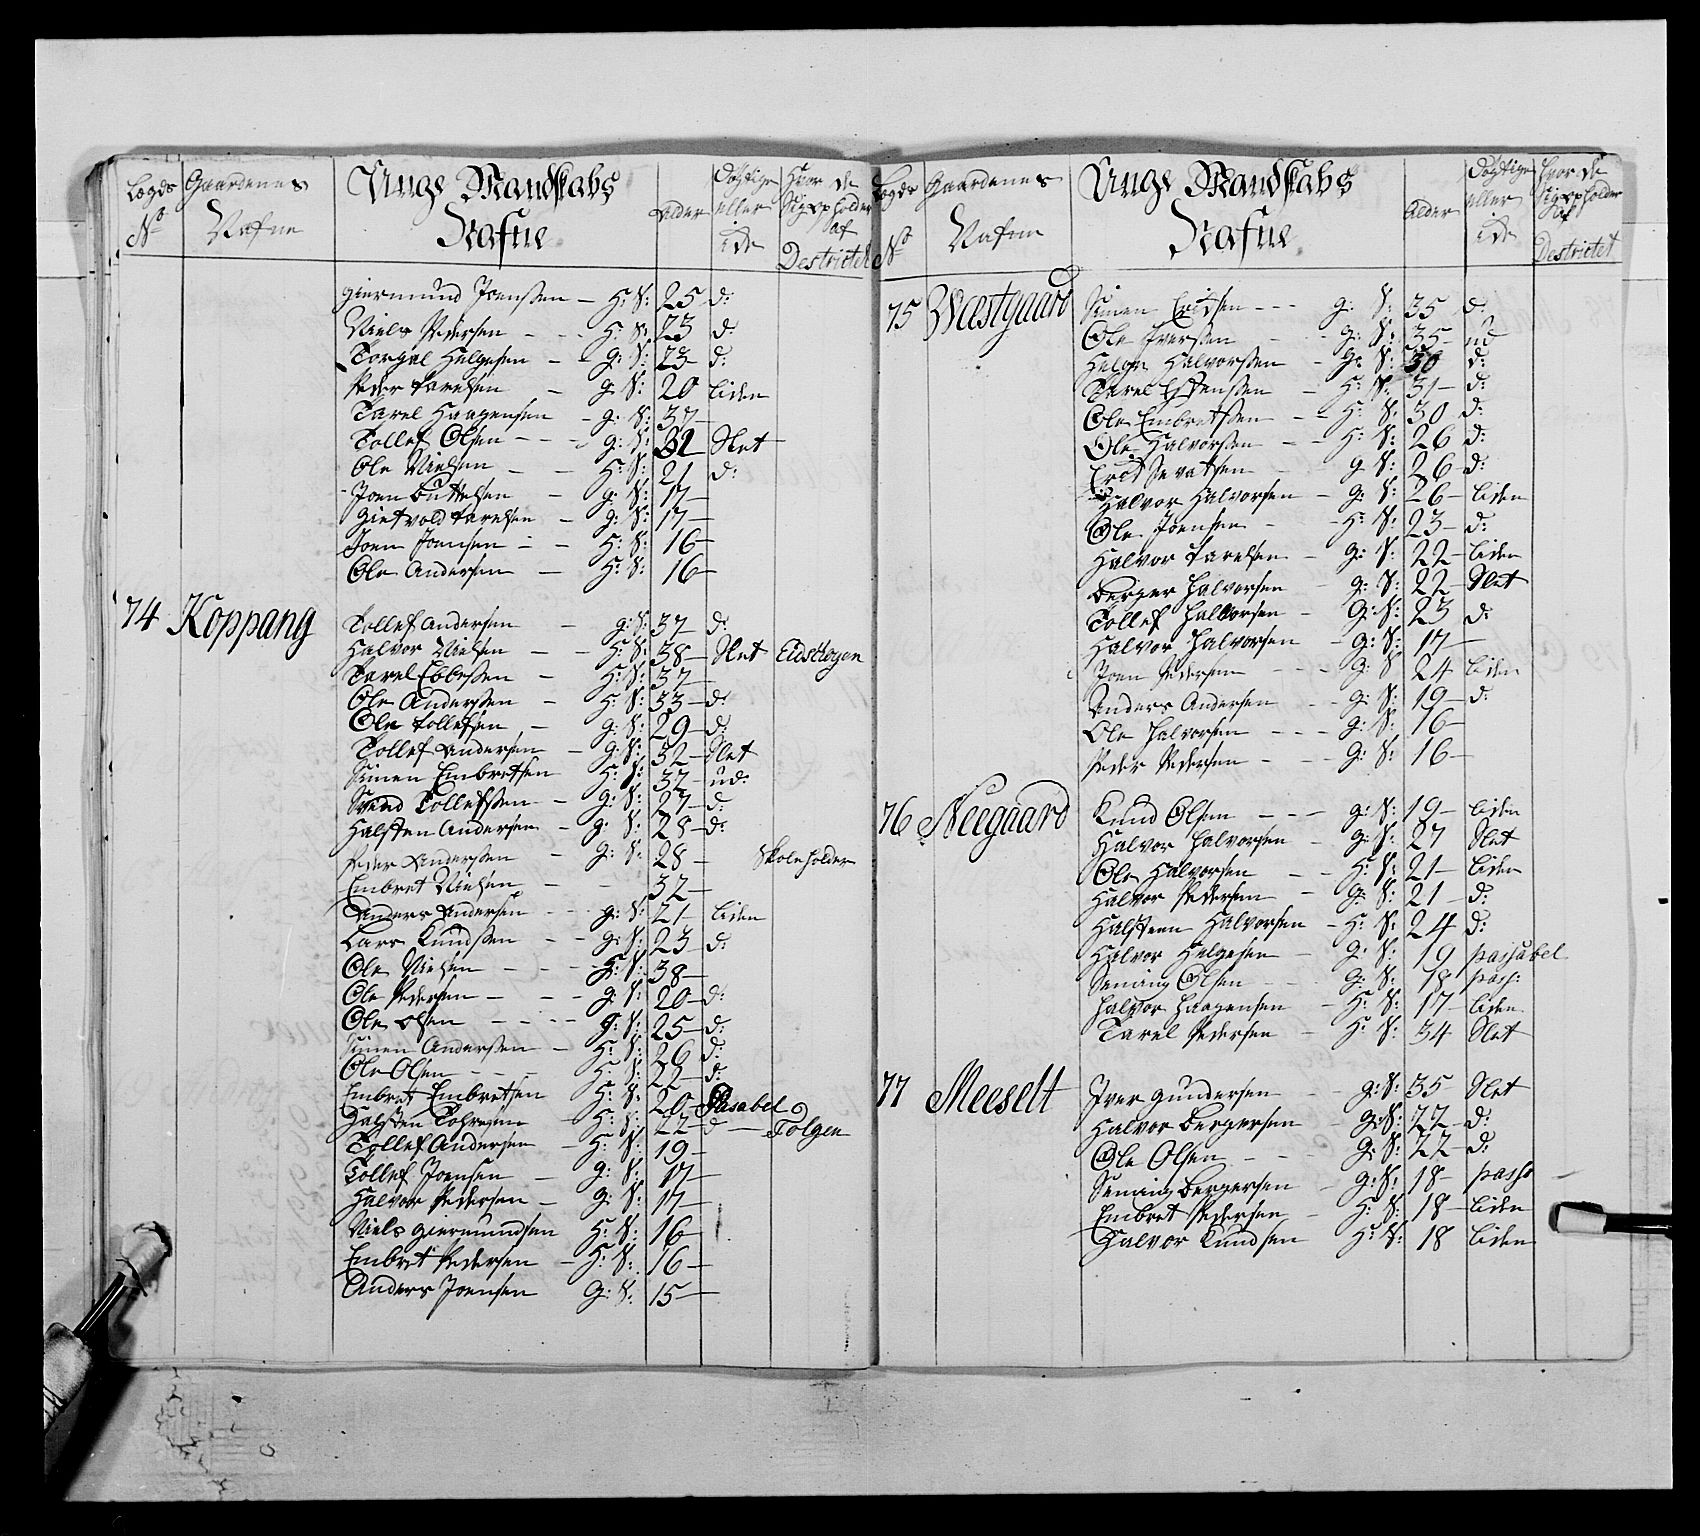 Lægds No
Gaardenes Nafne
Unge Mandskabs Nafne
Alder
Dögtige eller ide
Hvor de Sig opholder af Destrictet
Giermund Joensen — H: S: 25 d:
Niels Pedersen — H: S: 23 d:
Torgel Helgesen — g: S: 23 d:
Peder Tarelsen g: S: 20 liden
Tarel Haagensen — g: S: 37 —
Tollef Olsen — g: S: 32 Slet
Ole Nielsen — H: S: 21 d:
Joen Buttelsen — g: S: 17 —
Gietvold Tarelsen — g: S: 17 —
Joen Joensen — H: S: 16 —
Ole Andersen — H: S: 16 —
74 Koppang Tollef Andersen — g: S: 37 — d:
Halvor Nielsen — H: S: 38 — Slet Eidskogen
Tarel Ebbesen — H: S: 37 —
Ole Andersen — H: S: 33 — d:
Ole Tollefsen — g: S: 29 — d:
Tollef Andersen — g: S: 32 — Slet
Simen Embretsen H: S: 32 — ud:
Svend Tollefsen — g: S: 27 — d:
Halsten Andersen — g: S: 28 — d:
Peder Andersen — g: S: 28 — Skoleholder
Embret Nielsen — 32 —
Anders Andersen — g: S: 21 — liden
Lars Knudsen — g: S: 23 d:
Ole Nielsen — H: S: 38 —
Ole Pedersen — g: S: 20 — d:
Ole Olsen — g: S: 25 — d:
Simen Andersen — H: S: 26 d:
Ole Olsen — H: S: 22 — d:
Embret Embretsen H: S: 20 — Pasabel
Halsten H: S: 22 — d — Tolgen
Tollef Andersen — H: S: 19 —
Tollef Joensen — g: S: 17 —
Halvor Pedersen — g: S: 17 —
Niels Giermundsen H: S: 16 —
Embret Pedersen — H: S: 16 —
Anders Joensen g: S: 15 —
Lægds No
Gaardenes Nafne
Unge Mandskabs Nafne
Alder
Dögtige eller ide
Hvor de Sig opholder af Destrictet
75 Westgaard Simen Ericksen — g: S: 35 d:
Ole Iversen — g: S: 35 — ud
Helge Halvorsen — g: S: 30 d:
Tarel Estensen — H: S: 31 — d:
Ole Embretsen — H: S: 30 d:
Ole Halvorsen — H: S: 26 d:
Erick Sevatsen — g: S: 26 d:
Halvor Halvorsen — g: S: 26 — liden
Ole Joensen — H: S: 23 — d:
Halvor Tarelsen — g: S: 22 — liden
Berger Halvorsen — g: S: 22 Slet
Tollef Halvorsen — g: S: 23 d:
Halvor Halvorsen — g: S: 17 —
Joen Pedersen — g: S 24 liden
Anders Andersen — g: S: 19 — d:
Ole Halvorsen — g: S: 16 —
Peder Pedersen — g: S: 16 —
76 Neegaard Knud Olsen — g: S: 19 — liden
Halvor Halvorsen — g: S: 27 Slet
Ole Halvorsen — H: S: 21 — liden
Halvor Pedersen — g: S: 21 — d:
Halsteen Halvorsen — H: S: 24 d:
Halvor Helgesen — g: S: 19 passabel
Seming Olsen — g: S: 18 pass:
Halvor Haagensen — H: S: 17 — liden
Tarel Pedersen — H: S: 34 Slet
77 Meeselt Iver Gundersen — g: S: 35 Slet
Halvor Bergersen — g: S: 22 — d:
Ole Olsen — g: S: 22 — d:
Seming Bergersen — g: S: 18 — pass
Embret Pedersen — H: S: 18 — liden
Halvor Knudsen H: S: 18 liden